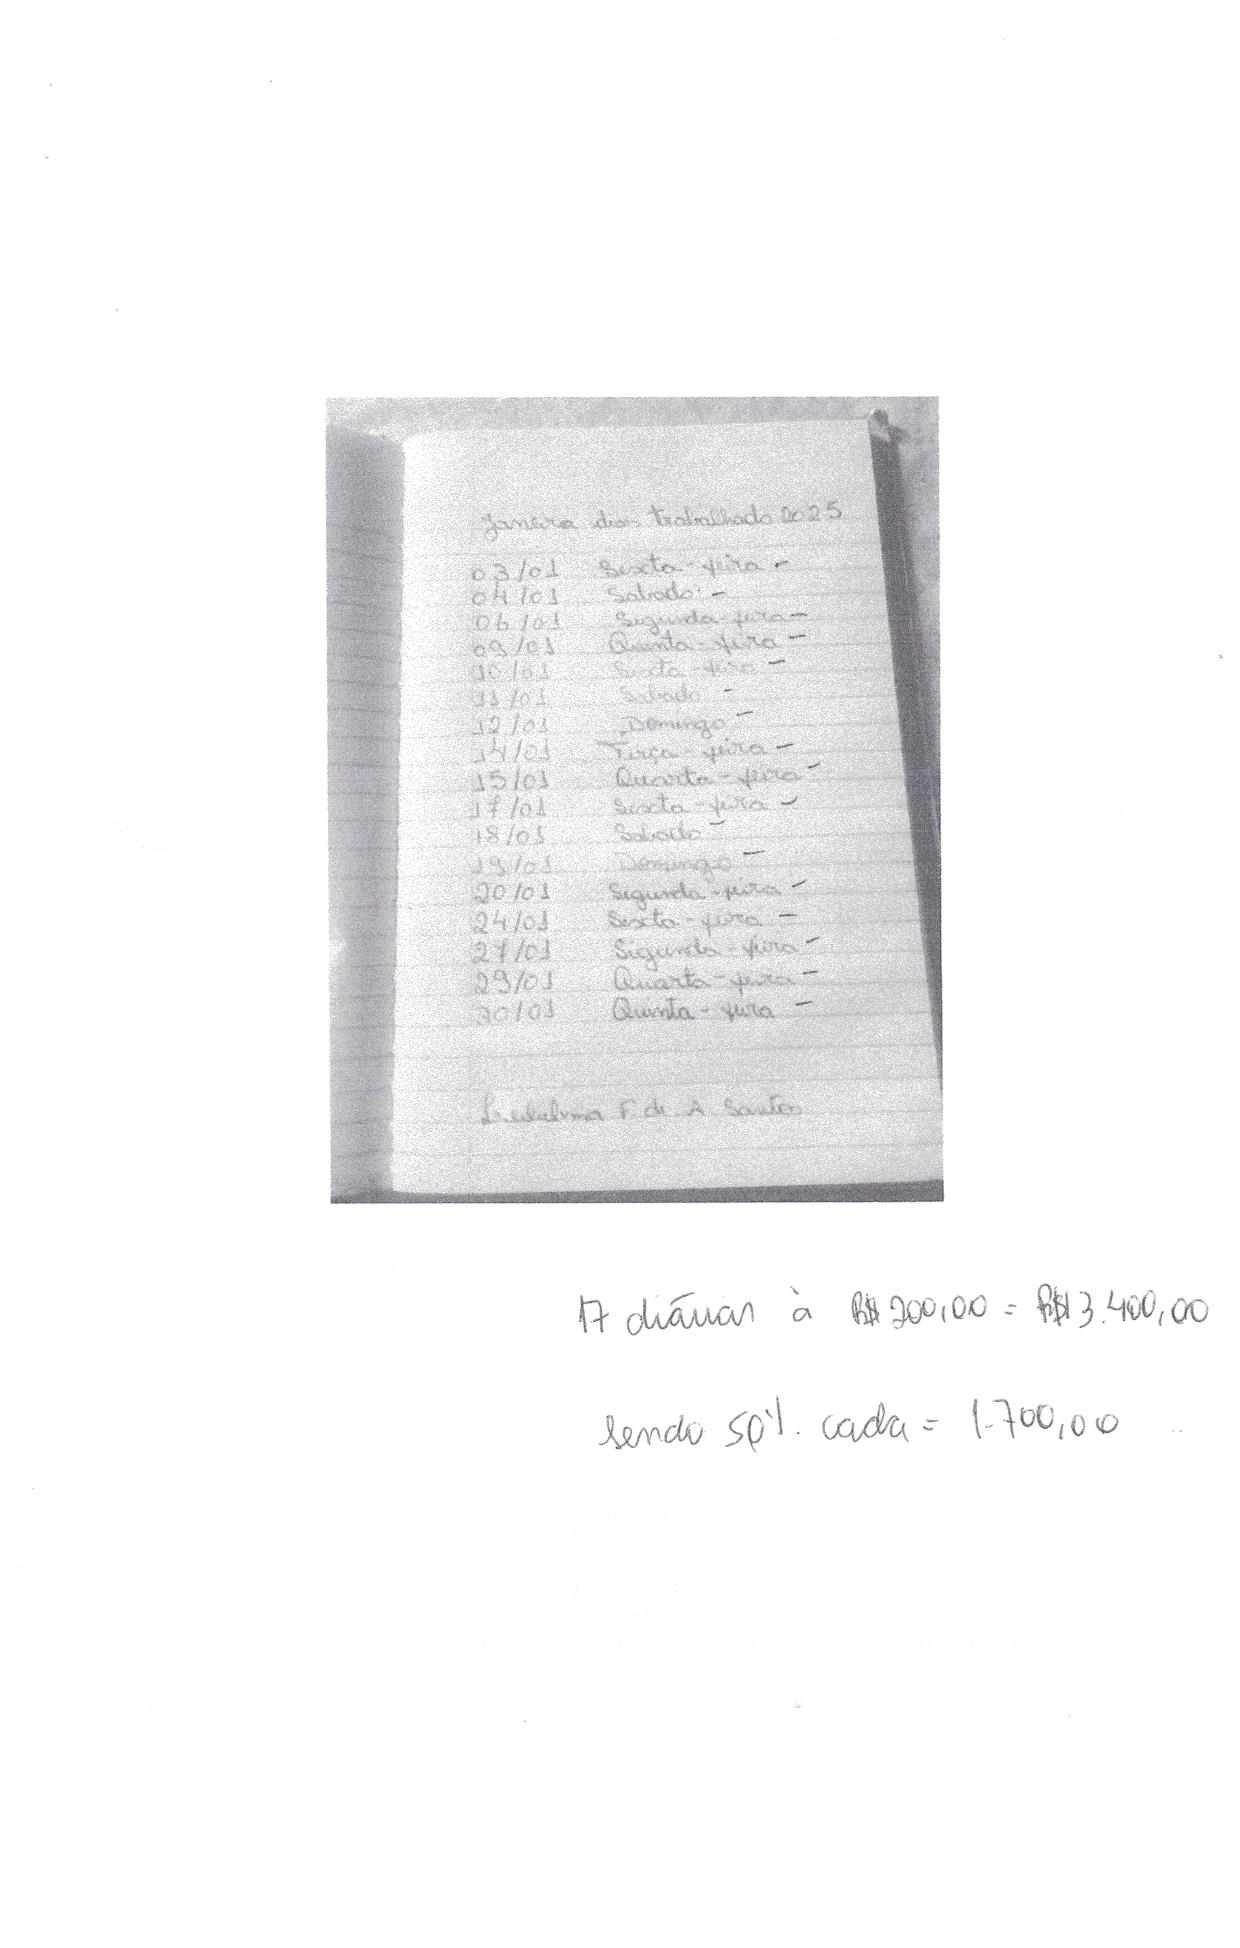 Janeiro dias trabalhado 2025
03/01 Sexta-feira -
04/01 Sabado -
06/01 Segunda-feira -
09/01 Quinta-feira -
10/01 Sexta-feira -
11/01 Sabado -
12/01 Domingo -
14/01 Terça-feira -
15/01 Quarta-feira -
17/01 Sexta-feira -
18/01 Sabado -
19/01 Domingo -
20/01 Segunda-feira -
24/01 Sexta-feira -
27/01 Segunda-feira -
29/01 Quarta-feira -
30/01 Quinta-feira -
F de A Santos
17 diárias à R$ 200,00 = R$ 3.400,00
sendo 50%. cada = 1.700,00